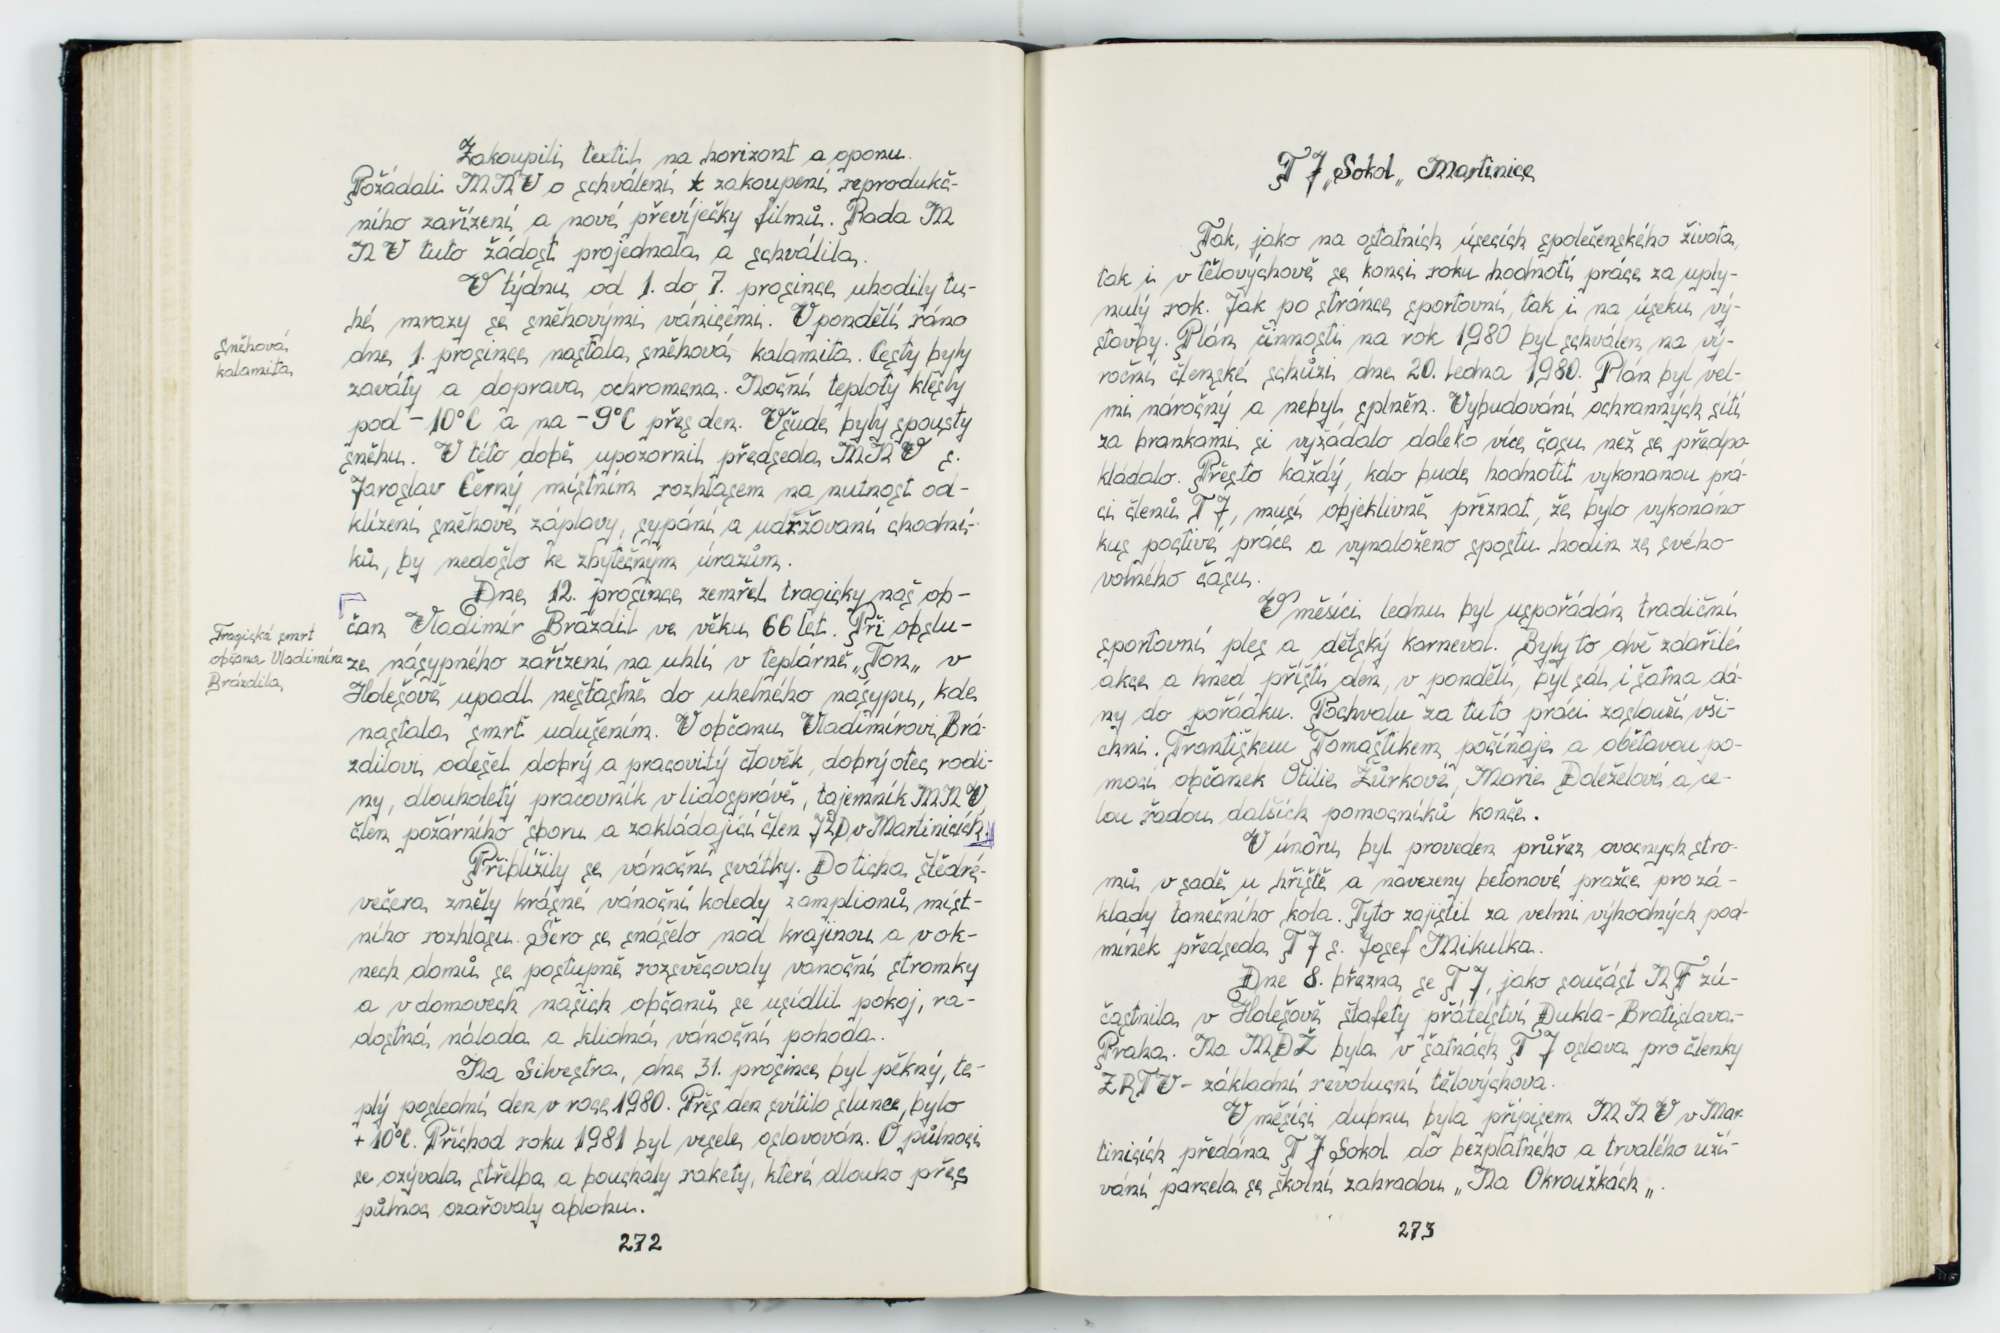 Zakoupili textil na horizont a oponu.
Požádali MNV o schválení k zakoupení reprodukč-
ního zařízení a nové převíječky filmů. Rada M
NV tuto žádost projednala a schválila.
V týdnu od 1. do 7. prosince uhodily tu-
hé mrazy se sněhovými vánicemi. V pondělí ráno
dne 1. prosince nastala sněhová kalamita. Cesty byly
zaváty a doprava ochromena. Noční teploty klesly
pod -10°C a na -9°C přes den. Všude byly spousty
sněhu. V této době upozornil předseda MNV s.
Jaroslav Černý místním rozhlasem na nutnost od-
klízení sněhové záplavy, sypání a udržovaní chodní-
ků, by nedošlo ke zbytečným úrazům.
Dne 12. prosince zemřel tragicky náš ob-
čan Vladimír Brázdil ve věku 66 let. Při obslu-
ze násypného zařízení na uhlí v teplárně „Ton„ v
Holešově upadl nešťastně do uhelného násypu, kde
nastala smrt udušením. V občanu Vladimírovi Brá-
zdilovi odešel dobrý a pracovitý člověk, dobrý otec rodi-
ny, dlouholetý pracovník v lidosprávě, tajemník MNV,
člen požárního sboru a zakládající člen JZD v Martinicích.
Přiblížily se vánoční svátky. Do ticha štědré-
večera zněly krásné vánoční koledy z amplionů míst-
ního rozhlasu. Šero se snášelo nad krajinou a v ok-
nech domů se postupně rozsvěcovaly vanoční stromky
a v domovech našich občanů se usídlil pokoj, ra-
dostná nálada a klidná vánoční pohoda.
Na Silvestra, dne 31. prosince byl pěkný, te-
plý poslední den v roce 1980. Přes den svítilo slunce, bylo
+ 10°C. Příchod roku 1981 byl vesele oslavován. O půlnoci
se ozývala střelba a bouchaly rakety, které dlouho přes
půlnoc ozařovaly oblohu.
272
Sněhová
kalamita
Tragická smrt
občana Vladimíra
Brázdila
TJ „Sokol„ Martinice
Tak, jako na ostatních úsecích společenského života,
tak i v tělovýchově se konci roku hodnotí práce za uply-
nulý rok. Jak po stránce sportovní, tak i na úseku vý-
stavby. Plán činnosti na rok 1980 byl schválen na vý-
roční členské schůzi dne 20. ledna 1980. Plán byl vel-
mi náročný a nebyl splněn. Vybudování ochranných sítí
za brankami si vyžádalo daleko více času než se předpo-
kládalo. Přesto každý, kdo bude hodnotit vykonanou prá-
ci členů TJ, musí objektivně přiznat, že bylo vykonáno
kus poctivé práce a vynaloženo spostu hodin ze svého
volného času.
V měsíci lednu byl uspořádán tradiční
sportovní ples a dětský karneval. Byly to dvě zdařilé
akce a hned příští den, v pondělí, byl sál i šatna dá-
ny do pořádku. Pochvalu za tuto práci zaslouží vši-
chni. Františkem Tomaštíkem počínaje a obětavou po-
mocí občanek Otilie Zůrkové, Marie Doleželové a ce-
lou řadou dalších pomocníků konče.
V únoru byl proveden průřez ovocnych stro-
mů v sadě u hřiště a navezeny betonové pražce pro zá-
klady tanečního kola. Tyto zajistil za velmi výhodných pod-
mínek předseda TJ s. Josef Mikulka.
Dne 8. března se TJ, jako součást NF zú-
častnila v Holešově štafety přátelství Dukla-Bratislava-
Praha. Na MDŽ byla v šatnách TJ oslava pro členky
ZRTV - základní revoluční tělovýchova.
V měsíci dubnu byla přípisem MNV v Mar-
tinicích předána TJ Sokol do bezplatného a trvalého uží-
vání parcela se školní zahradou „Na Okroužkách„.
273